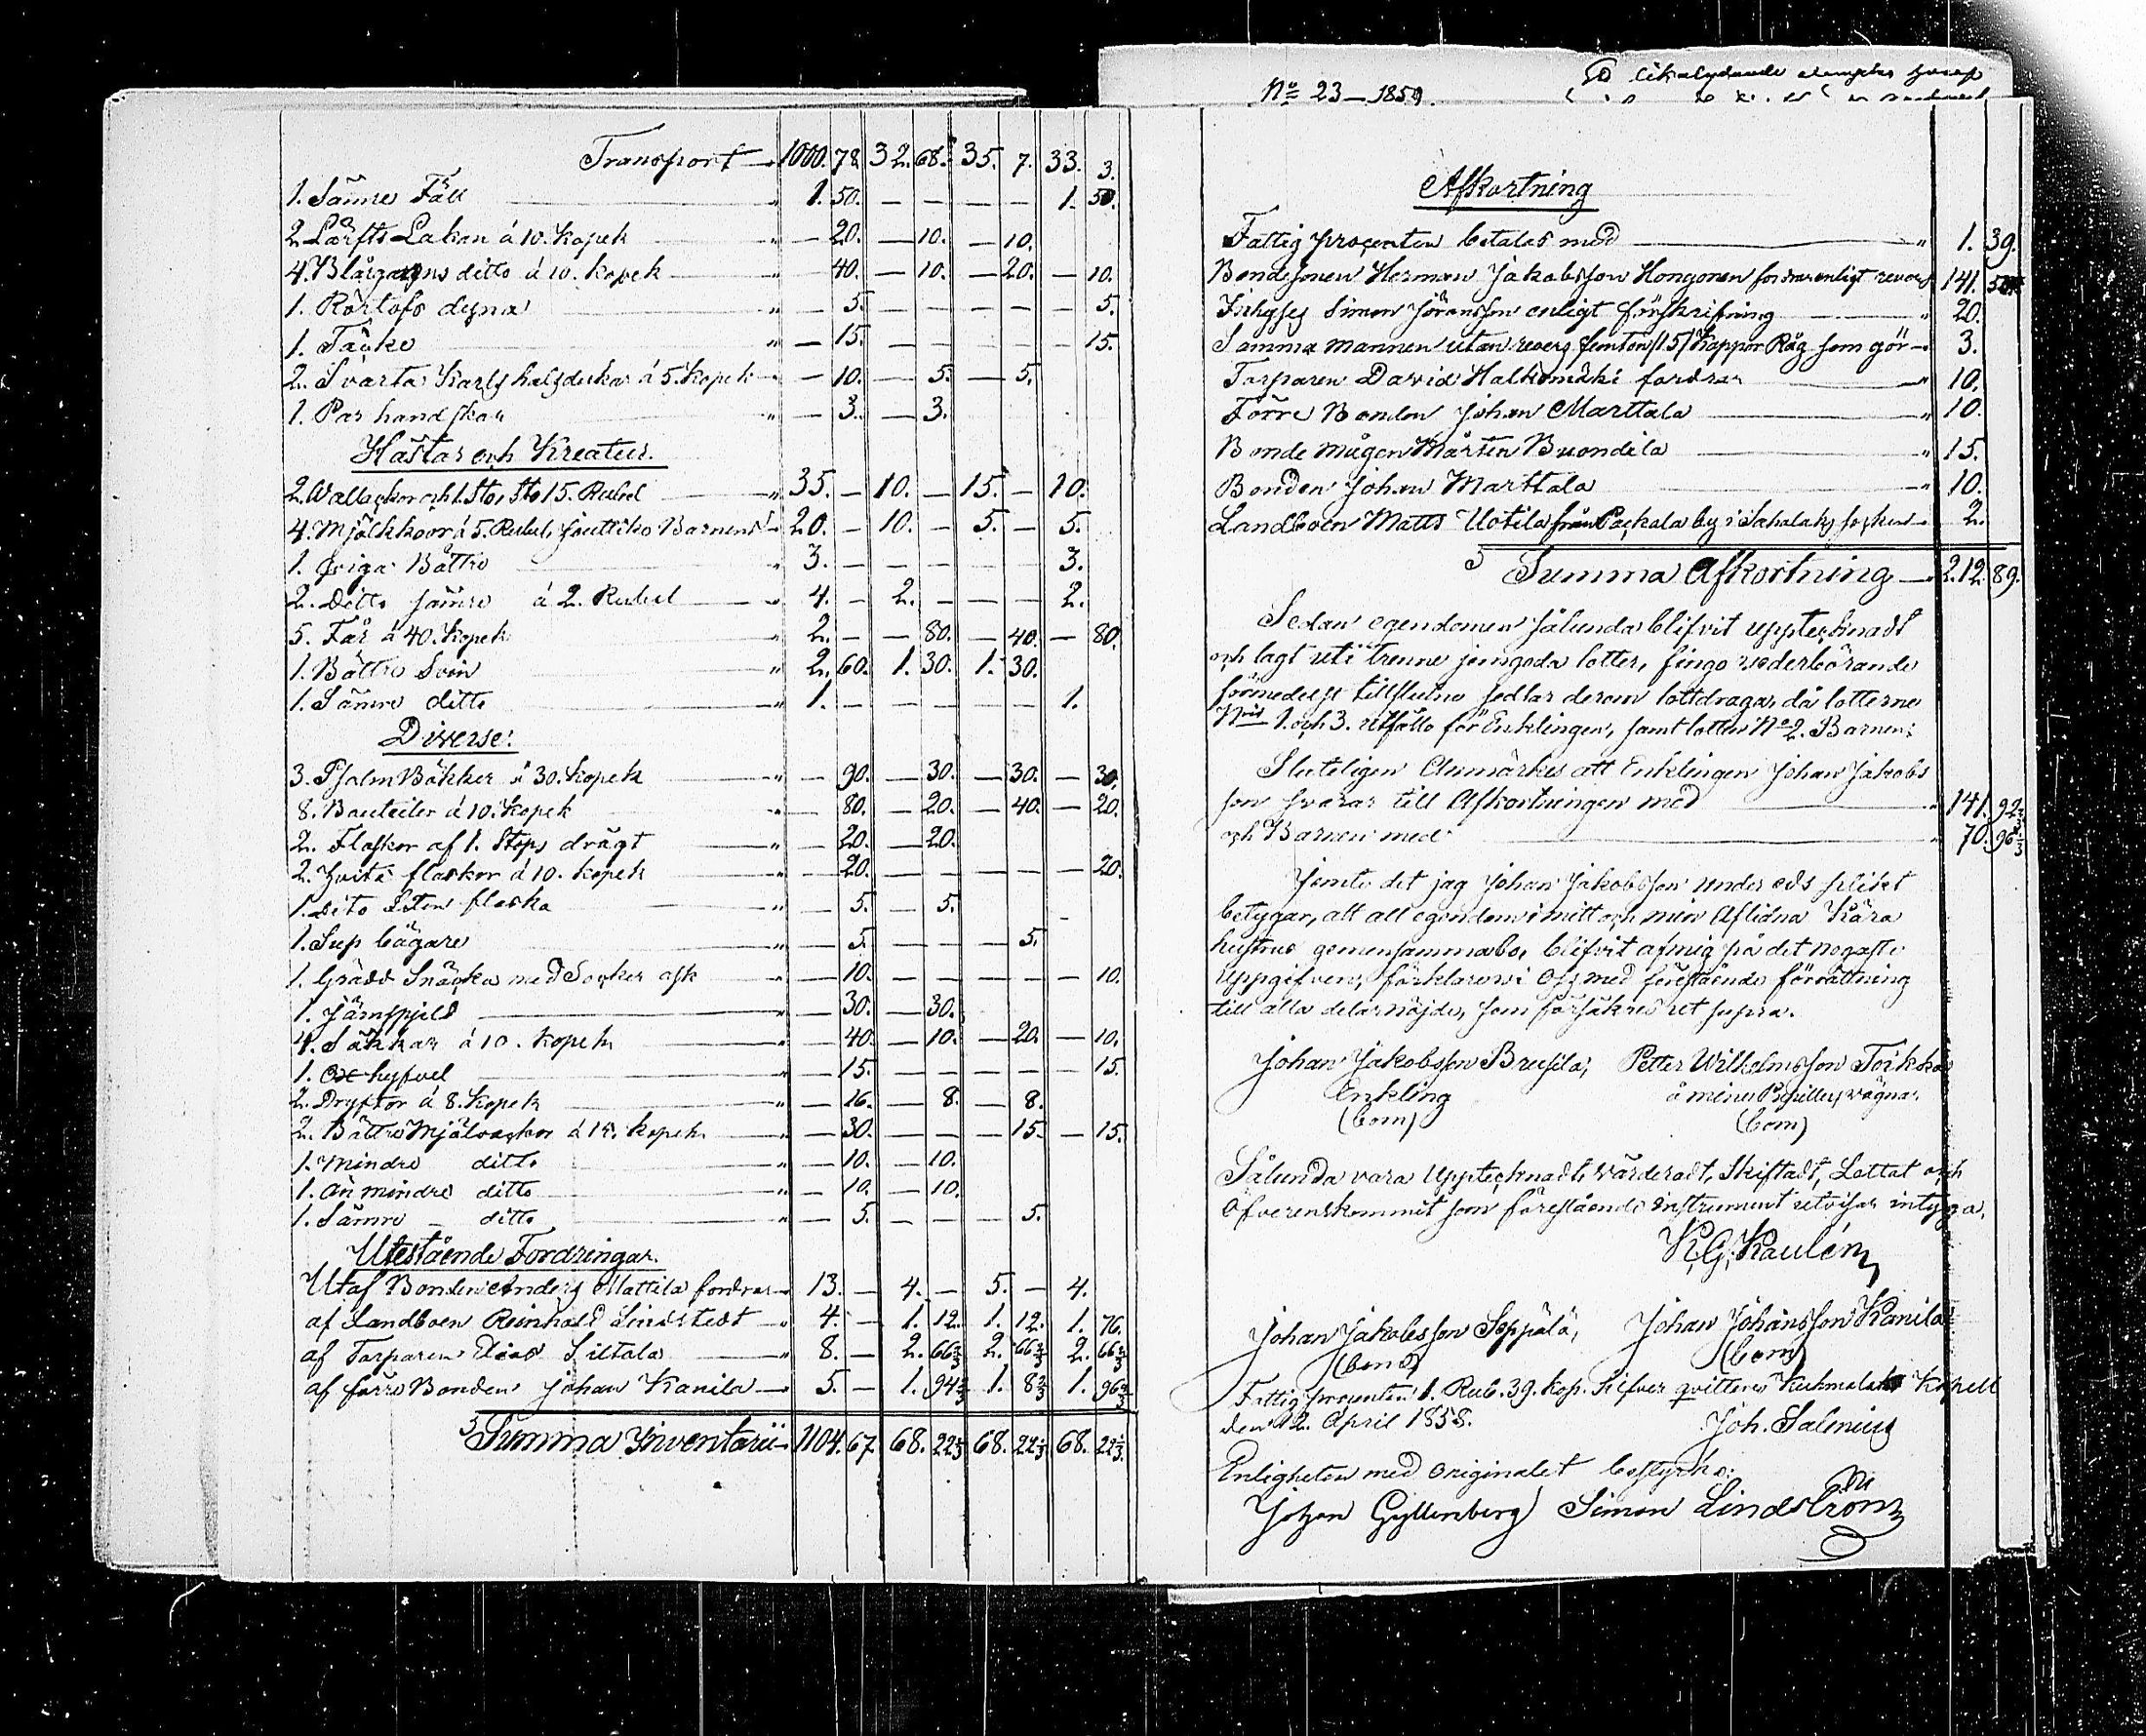 Transport 1000. 78. 32. 68. 35. 7. 33. 3.
1. Sämre Fäll " 1. 50. — — — — 1. 50.
2. Lärfts Lakan á 10. Kopek " — 20. — 10. — 10.
4. Blårgarns ditto á 10. kopek " — 40. — 10. — 20. — 10.
1. Rörtofs dyna " — 5. — — — — 5.
1. Täcke " — 15. — — — — — 15.
2. Svarta Karls halsdukar á 5. Kopek " — 10. — 5. — 5.
1. Par handskar " — 3. — 3.
Hästar och Kreatur.
2. Wallackor och 1. Sto, Sto 15. Rubel " 35. — 10. — 15. — 10.
4. Mjölkkoor á 5. Rubel, Juttiko Barnens " 20. — 10. — 5. — 5.
1. qviga Bättre 3. — — — — — 3.
2. Ditto sämre á 2. Rubel " 4. — 2. — — — 2.
5. Får á 40. Kopek " 2. — — 80. — 40. — 80.
1. Bättre Svin " 2. 60. 1. 30. 1. 30.
1. Sämre ditto " 1. — — — — — 1.
Diverse:
3. Psalm Böcker á 30. kopek " — 90. — 30. — 30. — 30.
8. Bouteiler á 10. Kopek " — 80. — 20. — 40. — 20.
2. Flaskor af 1. Stops drägt " — 20. — 20.
2. hvita flaskor á 10. kopek " — 20. — — — — — 20.
1. Dito liten flaska " — 5. — 5.
1. Sup bägare " — 5. — — — 5.
1. Grädd Snäcka med Socker ask " — 10. — — — — — 10.
1. Järnspjeld " — 30. — 30.
4. Säckar á 10. kopek " — 40. — 10. — 20. — 10.
1. Ox hyfvel " — 15. — — — — — 15.
2. Dryftor á 8. kopek " — 16. — 8. — 8.
2. Bättre Mjölvackor á 15. kopek " — 30. — — — 15. — 15.
1. Mindre ditto " — 10. — 10.
1. än mindre ditto " — 10. — 10.
1. Sämre — ditto " — 5. — — — 5.
Utestående Fordringar.
Utaf Bonden Anders Mattila fordras 13. — 4. — 5. — 4.
af Landboen Reinhold Lindstedt " 4. — 1. 12. 1. 12. 1. 76.
af Torparen Elias Siltala " 8. — 2. 66⅔ 2. 66⅔ 2. 66⅔
af förre Bonden Johan Kanila 5. — 1. 94⅔ 1. 8⅔ 1. 96⅔
Summa Inventarii 1104. 67. 68. 22⅓ 68. 22⅓ 68. 22⅓.
No 23—1859.
likalydande
Afkortning
Fattig procenten betalas med " 1. 39.
Bondesonen Herman Jakobsson Hongonen fordrar enligt revers 141. 50.
Simon Jöransson enligt förskrifning 20.
Samma mannen utan revers femton /15/ Kappor Råg som gör 3.
Torparen David Halkomäki fordrar " 10.
Förre Bonden Johan Marttala " 10.
Bonde mågen Mårten Buondila " 15.
Bonden Johan Marttala " 10.
Landboen Matts Uotila från Packala by i Sahalaks socken 2.
Summa Afkortning 212. 89.
Sedan egendomen sålunda blifvit upptecknadt
och lagt uti trenne jemgoda lotter, fingo vederbörande
förmedelst tillslutne sedlar derom lottdraga, då lotterne
Nris 1. och 3. utfalla för Enklingen, samt lotten No 2. Barnen.
Sluteligen Anmärkes att Enklingen Johan Jakobs
son svarar till Afkortningen med " 141. 92⅔
och Barnen med " 70. 96⅓
Jemte det jag Johan Jakobsson under eds plikt
betygar, att all egendom i mitt och min Aflidna Kära
hustrus gemensamma bo, blifvit af mig på det nogaste
uppgifven, förklare vi oss med förestående förrättning
till alla delar nöjde, som försäkres ut supra.
Johan Jakobsson Brusila, Petter Wilhelmsson Toikko
Enkling å mines Pupillers vägnar
(bom) (bom)
Sålunda vara Upptecknadt, Värderadt, Skiftadt, Lottat och
Öfverenskommit som förestående instrument utvisar intyga,
K. G. Kaulén
Johan Jakobsson Seppälä, Johan Johansson Kanila
(bom) (bom)
Fattig procenten 1. Rub. 39. kop. Silfver qvitteres Kuhmalaks Kapell
den 12. April 1858. Joh. Salenius
Enligheten med Originalet bestyrka:
Johan Gyllenberg Simon Lindström